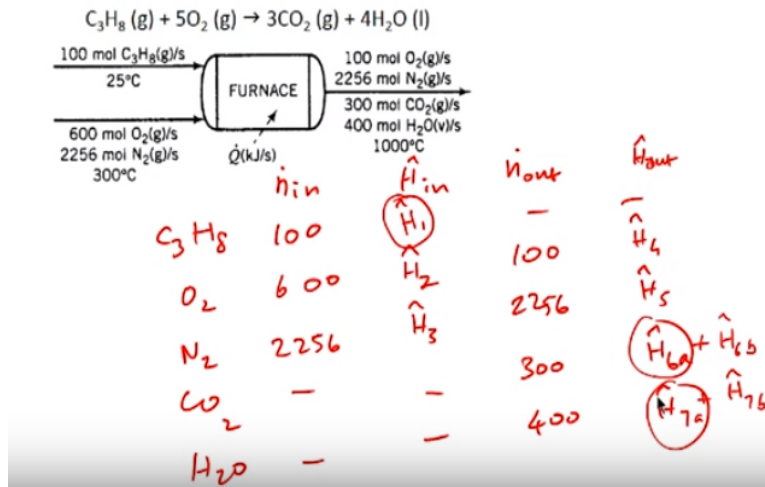 C₃H₈ (g) + 5O₂ (g) → 3CO₂ (g) + 4H₂O (l)
100 mol C₃H₈(g)/s
25°C
600 mol O₂(g)/s
2256 mol N₂(g)/s
300°C
FURNACE
Q̇(kJ/s)
100 mol O₂(g)/s
2256 mol N₂(g)/s
300 mol CO₂(g)/s
400 mol H₂O(v)/s
1000°C
ṅin Ĥin ṅout Ĥout
C₃H₈ 100 Ĥ₁ – –
O₂ 600 Ĥ₂ 100 Ĥ₄
N₂ 2256 Ĥ₃ 2256 Ĥ₅
CO₂ – – 300 Ĥ₆ₐ + Ĥ₆b
H₂O – – 400 Ĥ₇ₐ + Ĥ₇b